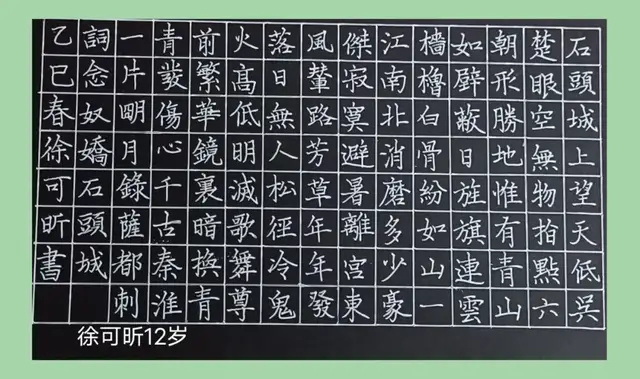 石頭城上望天低吳
楚眼空無物指點六
朝形勝地惟有青山
如壁蔽日旌旗連雲
檣櫓白骨紛如山一
江南北消磨多少豪
傑寂寞避暑離宮東
風輦路芳草年年發
落日無人松徑冷鬼
火髙低明滅歌舞尊
前繁華鏡裏暗換青
青發傷心千古秦淮
一片明月錄薩都刺
詞念奴嬌石頭城
乙巳春徐可昕書
徐可昕12岁